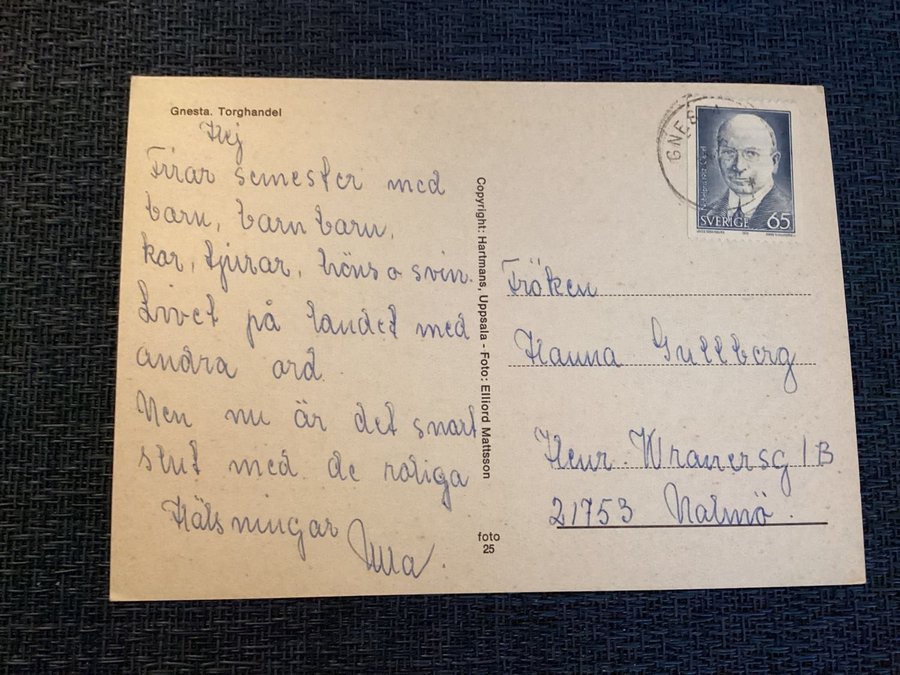 Gnesta. Torghandel
Hej
Firar semester med
barn, barnbarn,
kor, tjurar, höns o svin.
Livet på landet med
andra ord.
Men nu är det snart
slut med de roliga
Hälsningar
Ulla.
Copyright: Hartmans, Uppsala - Foto: Elliord Mattsson
foto
25
GNES
SVERIGE 65
Fröken
Hanna Gullberg
Henr. Wranersg 1B
21753 Malmö.